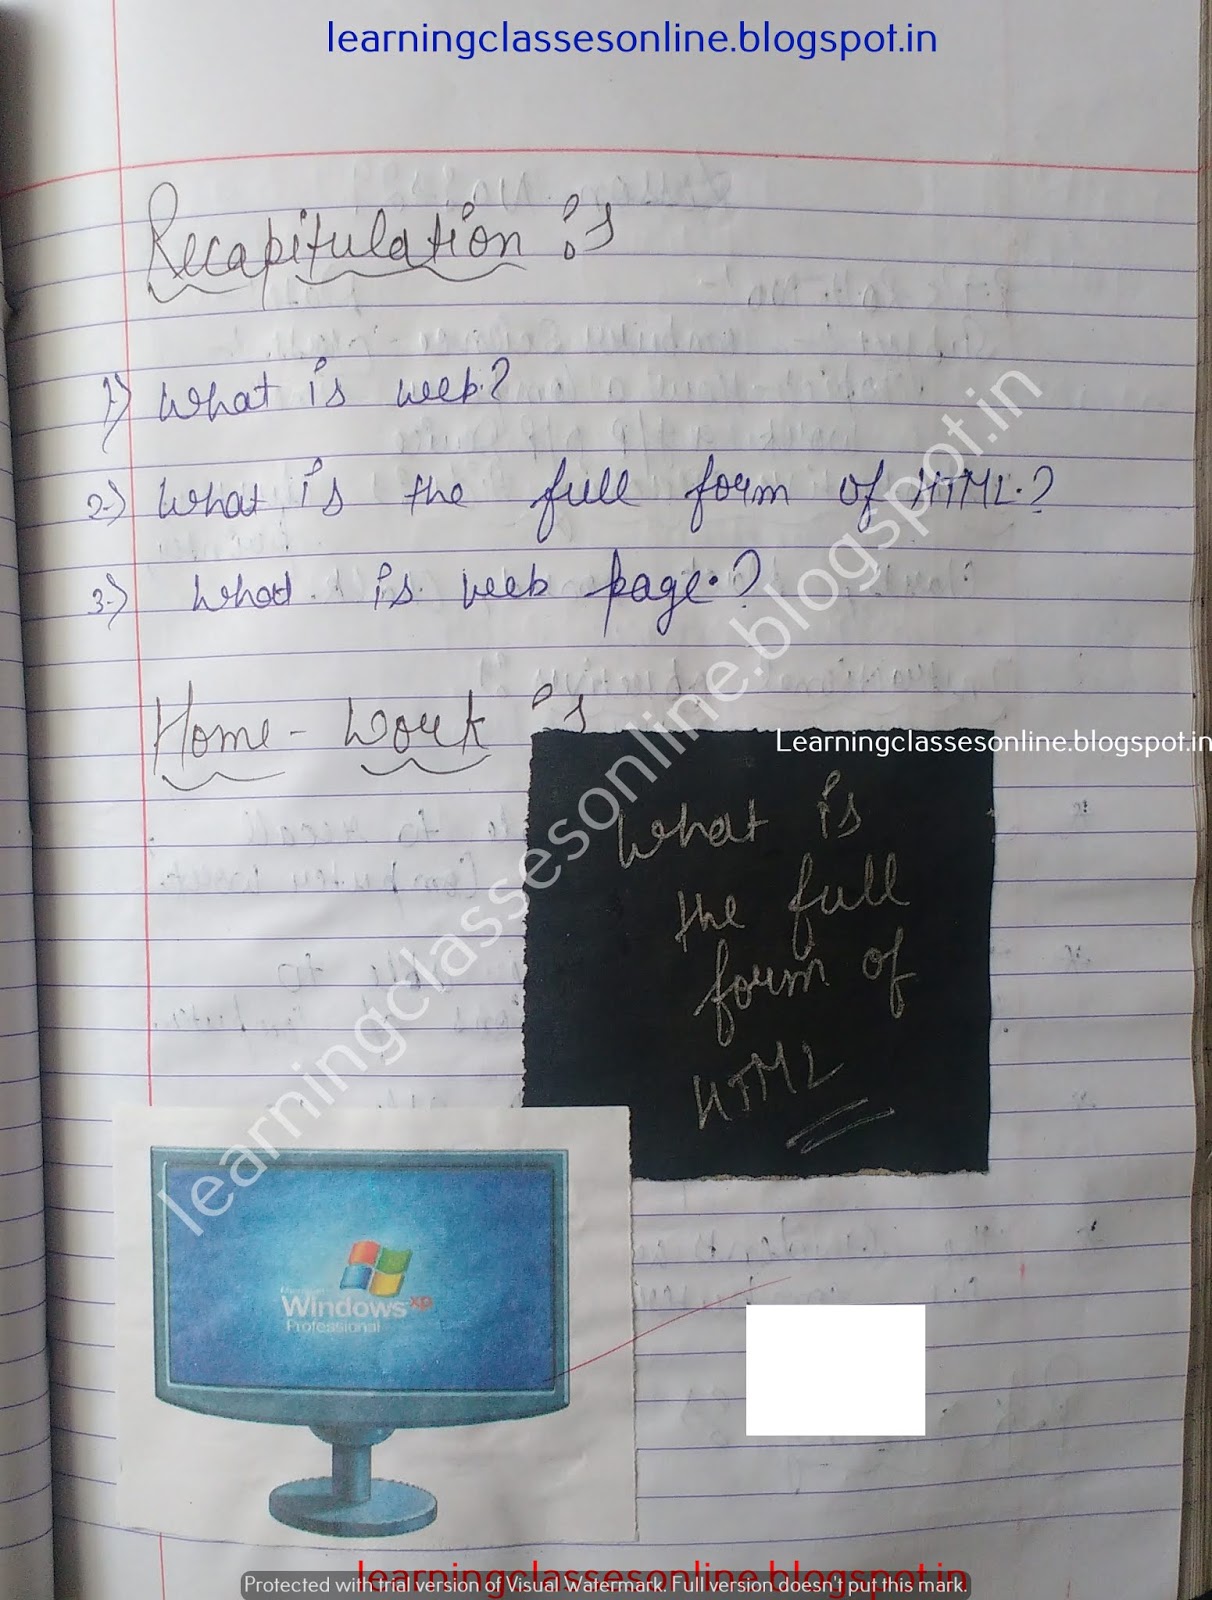 learningclassesonline.blogspot.in
Recapitulation :
1) What is web.?
2.) What is the full form of HTML.?
3.) What is web page.?
Home-Work :
Learningclassesonline.blogspot.in
What is
the full
form of
HTML
learningclassesonline.blogspot.in
Microsoft
Windows xp
Professional
learningclassesonline.blogspot.in
Protected with trial version of Visual Watermark. Full version doesn't put this mark.